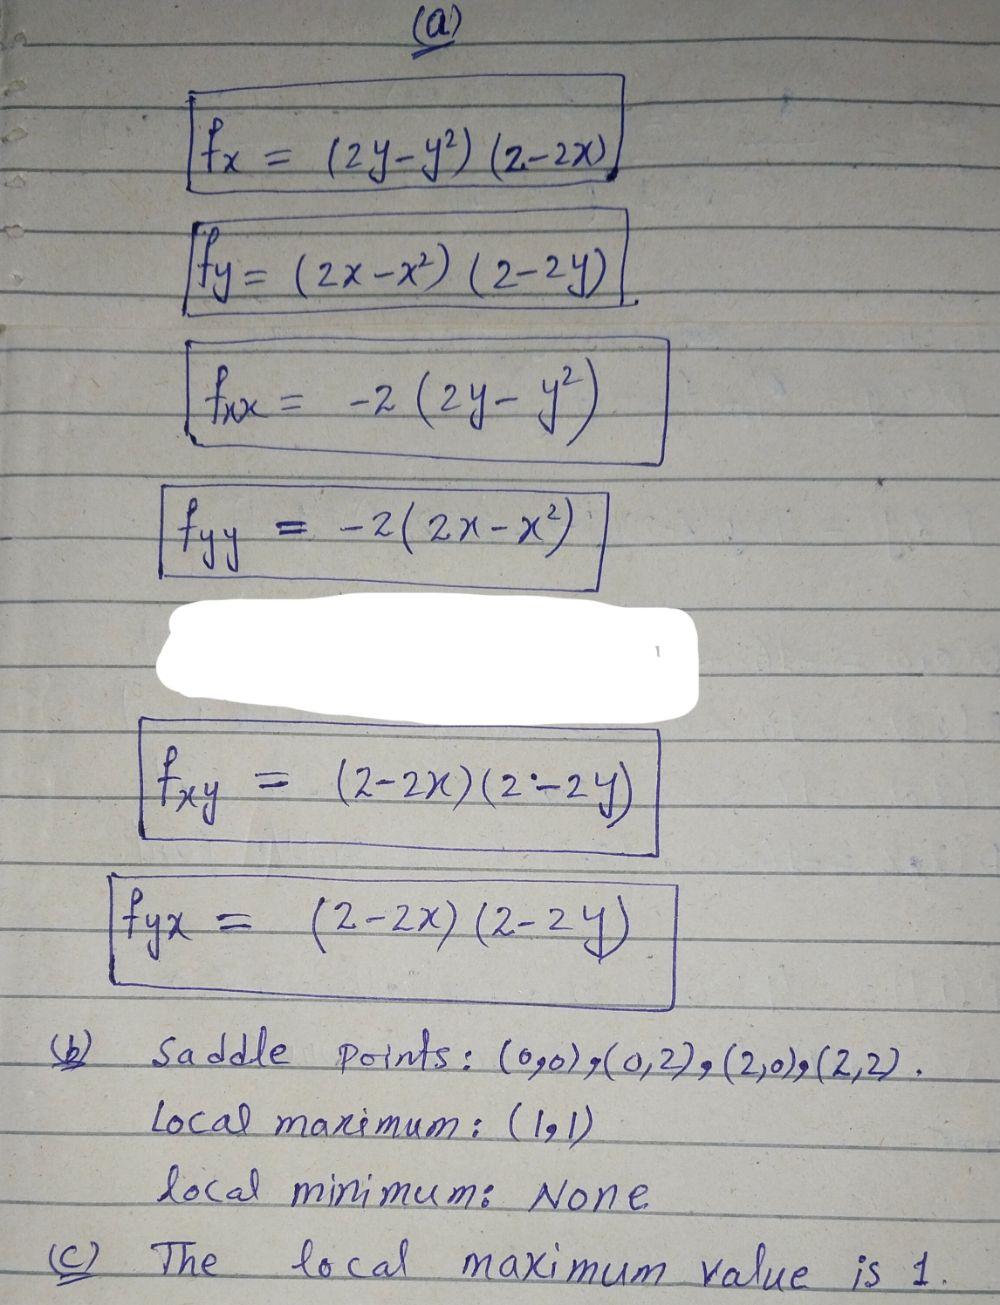 (a)
fx = (2y-y²) (2-2x)
fy = (2x-x²) (2-2y)
fxx = -2 (2y- y²)
fyy = -2(2x-x²)
fxy = (2-2x)(2-2y)
fyx = (2-2x) (2-2y)
(b) Saddle points: (0,0),(0,2),(2,0),(2,2).
Local maximum: (1,1)
local minimum: None
(c) The local maximum value is 1.